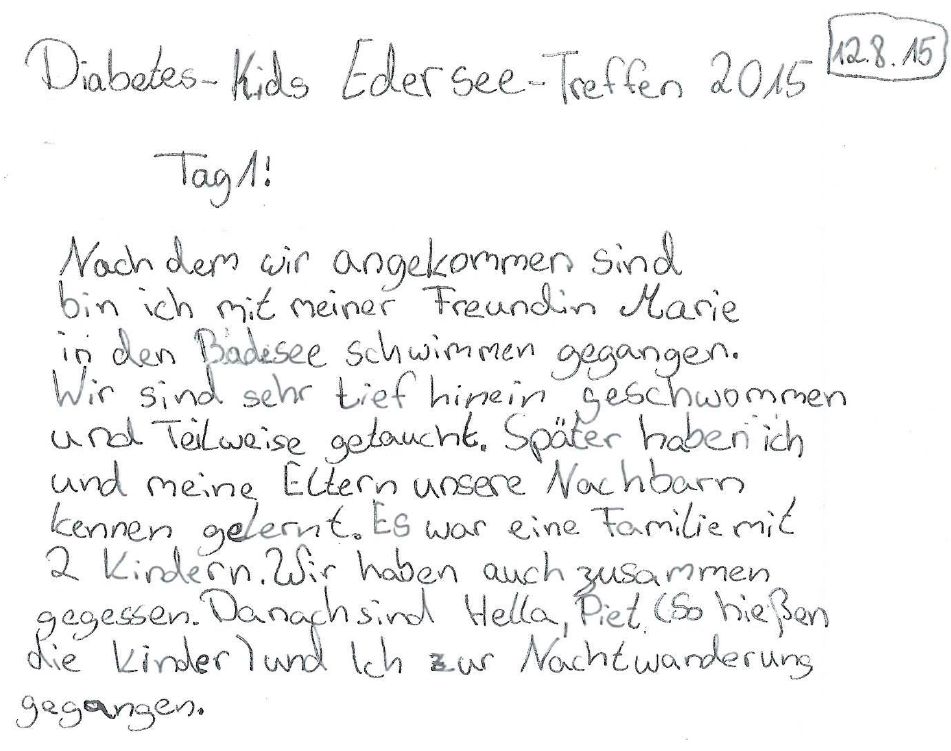 Diabetes-Kids Edersee-Treffen 2015
12.8.15
Tag 1!
Nach dem wir angekommen sind
bin ich mit meiner Freundin Marie
in den Badesee schwimmen gegangen.
Wir sind sehr tief hinein geschwommen
und Teilweise getaucht. Später haben ich
und meine Eltern unsere Nachbarn
kennen gelernt. Es war eine Familie mit
2 Kindern. Wir haben auch zusammen
gegessen. Danach sind Hella, Piet (So hießen
die Kinder) und Ich zur Nachtwanderung
gegangen.